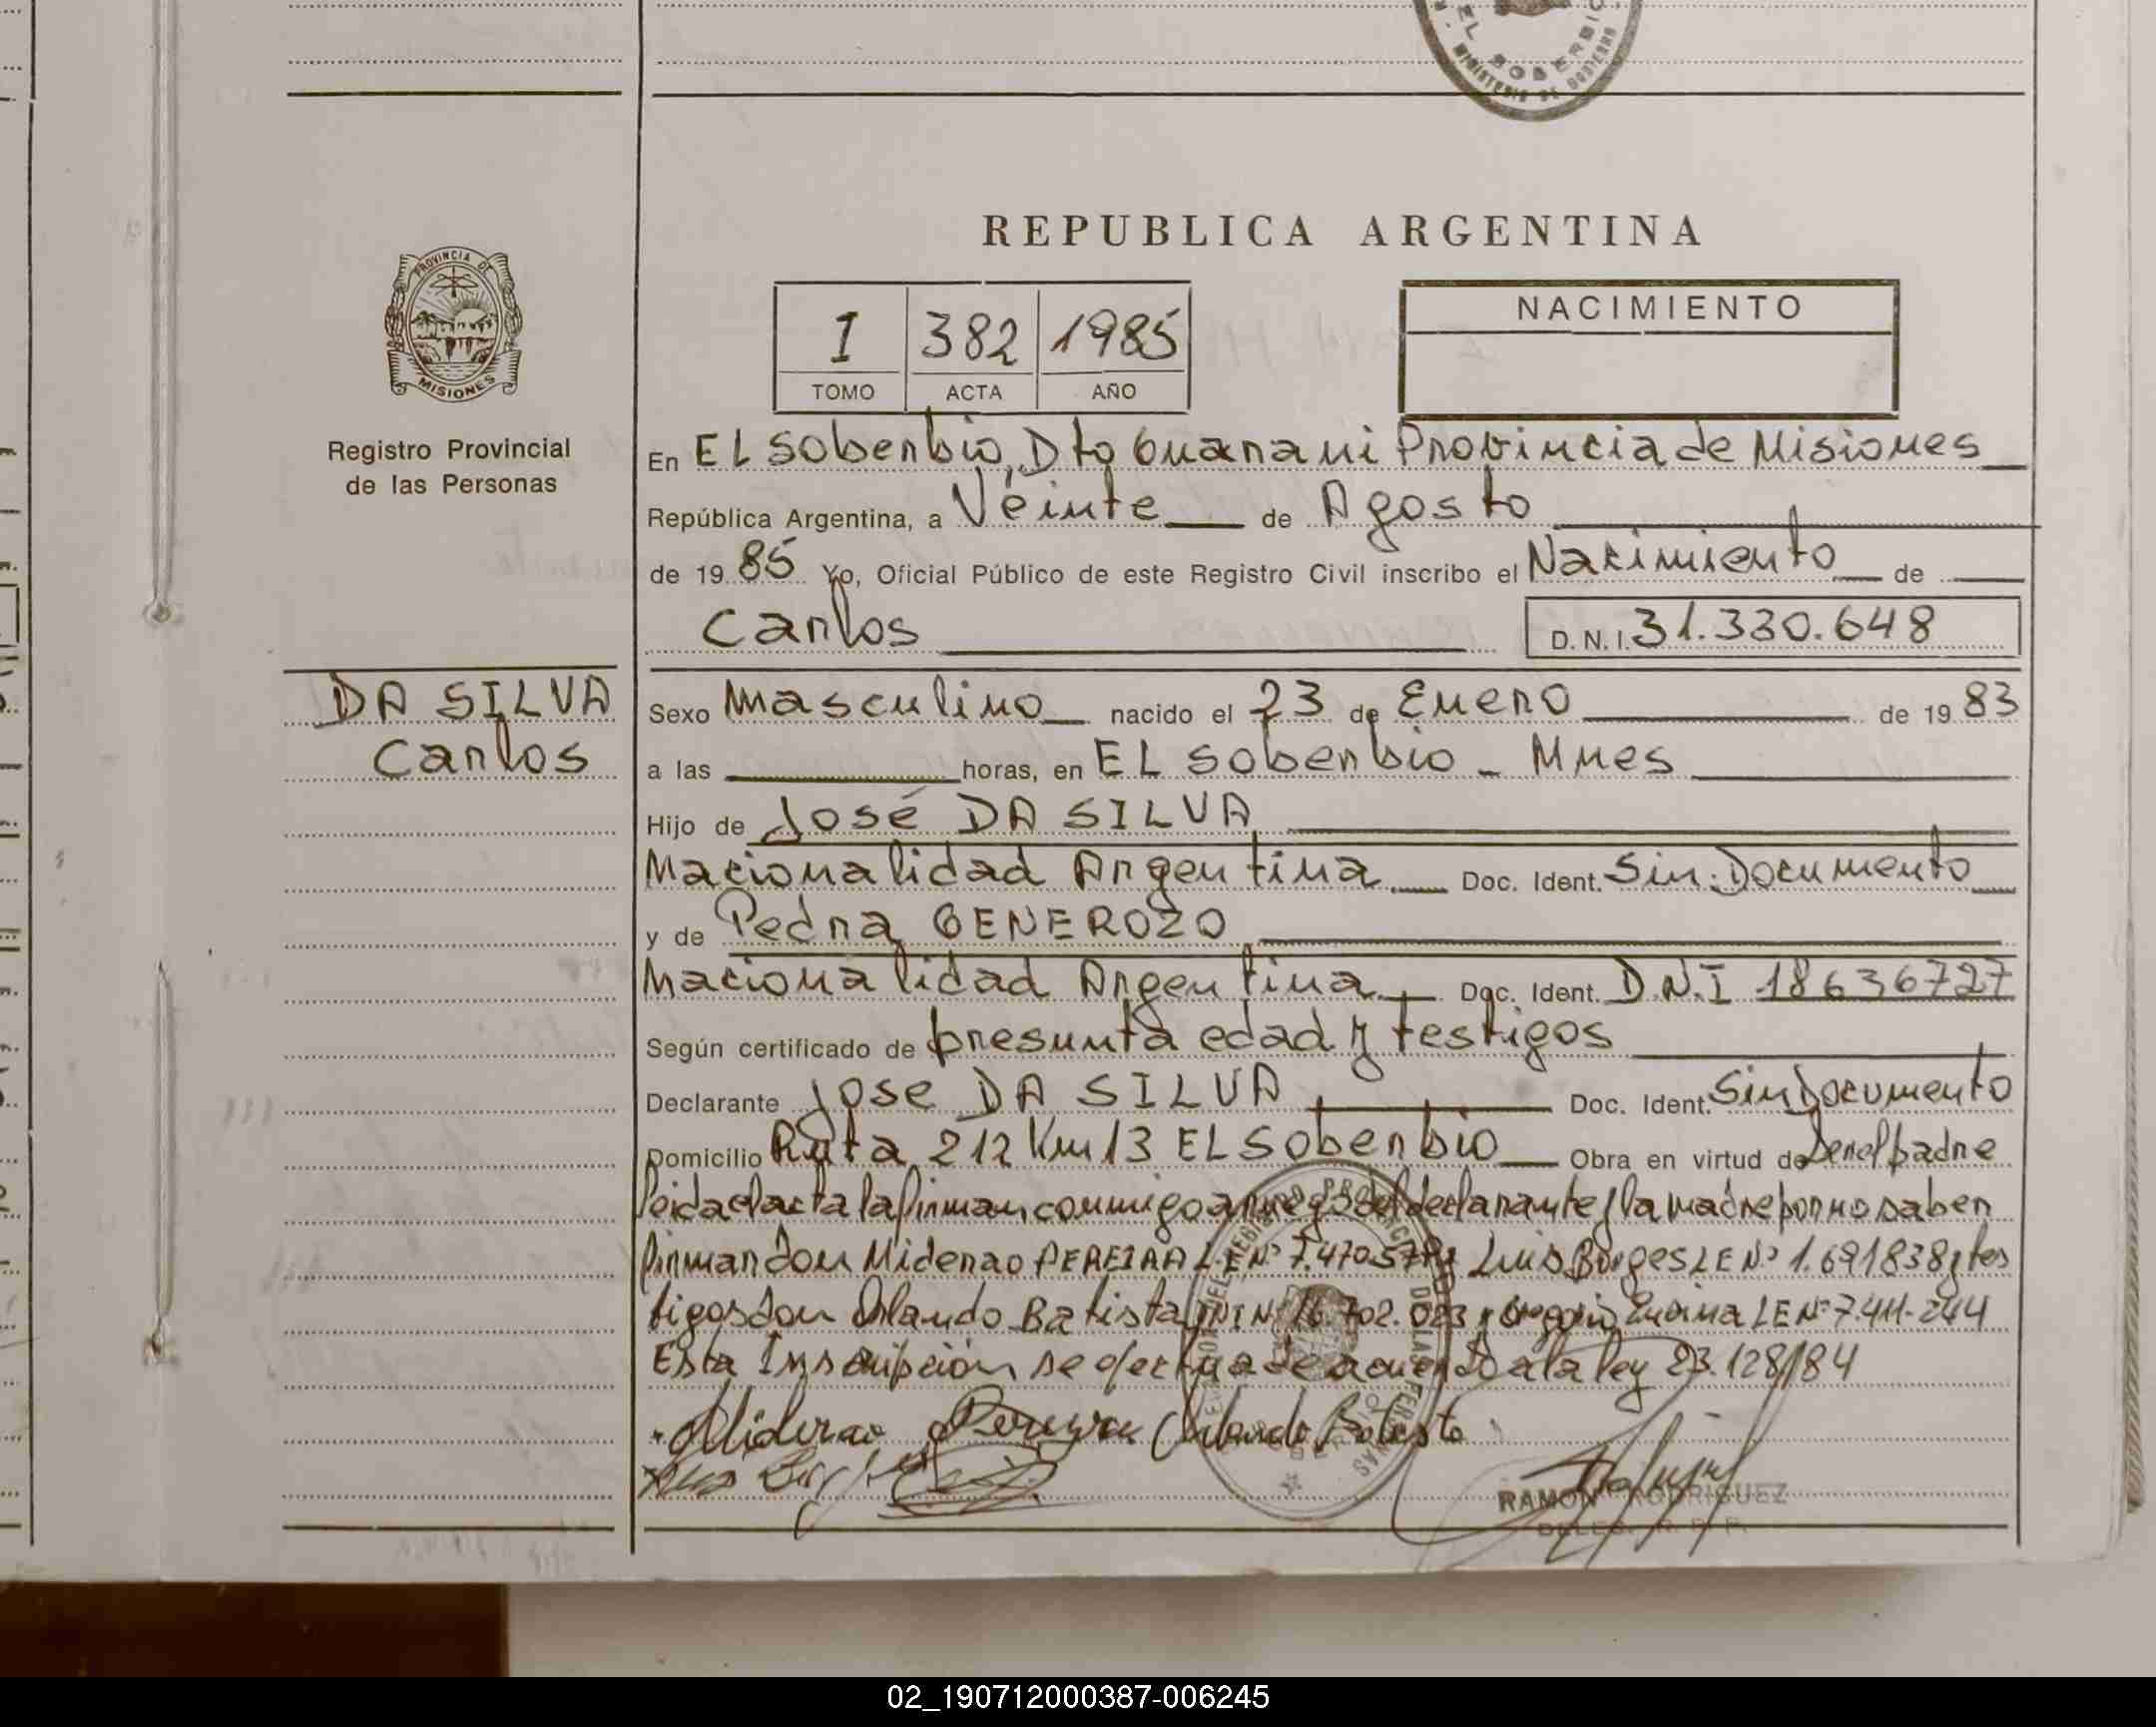 EL SOBERBIO
MINISTERIO DE GOBIERNO
REPUBLICA ARGENTINA
PROVINCIA DE
MISIONES
Registro Provincial
de las Personas
I 382 1985
TOMO ACTA AÑO
NACIMIENTO
En EL Soberbio, Dto Guarani Provincia de Misiones
República Argentina, a Veinte de Agosto
de 19 85 Yo, Oficial Público de este Registro Civil inscribo el Nacimiento de
Carlos D.N.I. 31.330.648
DA SILVA
Carlos
Sexo Masculino nacido el 23 de Enero de 19 83
a las horas, en EL Soberbio - Mnes
Hijo de José DA SILVA
Nacionalidad Argentina Doc. Ident. Sin Documento
y de Pedra GENEROZO
Nacionalidad Argentina Doc. Ident. D.N.I 18636727
Según certificado de presunta edad y testigos
Declarante Jose DA SILVA Doc. Ident. Sin Documento
Domicilio Ruta 212 Km 13 EL Soberbio Obra en virtud de Ser el padre
leida el acta la firman conmigo a ruego del declarante y la madre por no saber
firmar Don Miderao PEREIRA L.E Nº 7.470.577 y Luis Borges LE Nº 1.691838 y tes
tigos don Orlando Batista DNI Nº 16.702.023 y Gregorio Encina LE Nº 7.411-244
Esta Inscripción se efectua de acuerdo a la ley 23.128/84
Miderao Pereira Orlando Batista
RAMON RODRIGUEZ
DELEG. R. P. P.
02_190712000387-006245